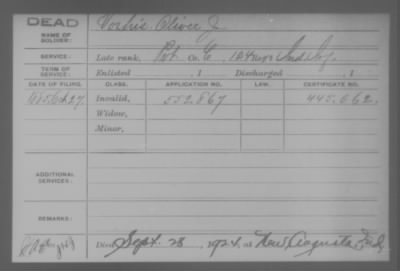 DEAD
NAME OF SOLDIER: Vorhis Oliver J.
SERVICE: Late rank, Pvt Co. E, 124 Ind Inf.
TERM OF SERVICE: Enlisted , 1 Discharged , 1
DATE OF FILING. CLASS. APPLICATION NO. LAW. CERTIFICATE NO.
Invalid, 552.867 445.662.
Widow,
Minor,
ADDITIONAL SERVICES:
REMARKS:
Died Sept. 28, 1924, at New Augusta Ind.